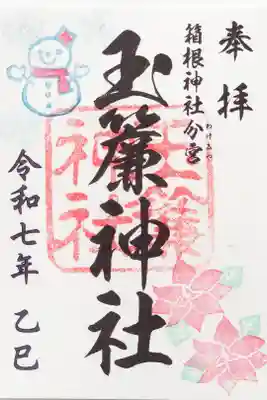 奉拝
箱根神社分宮
わけみや
玉簾神社
玉簾神社
令和七年 乙巳